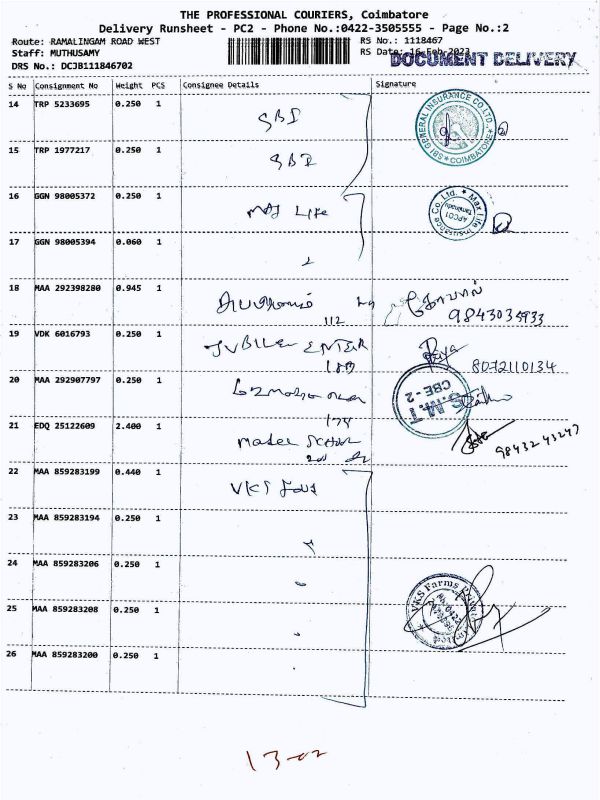 THE PROFESSIONAL COURIERS, Coimbatore
Delivery Runsheet - PC2 - Phone No.:0422-3505555 - Page No.:2
Route: RAMALINGAM ROAD WEST RS No.: 1118467
Staff: MUTHUSAMY RS Date: 16-Feb-2023
DOCUMENT DELIVERY
DRS No.: DCJB111846702
S No Consignment No Weight PCS Consignee Details Signature
14 TRP 5233695 0.250 1 SBI
SBI GENERAL INSURANCE CO.LTD. COIMBATORE
15 TRP 1977217 0.250 1 SBI
16 GGN 98005372 0.250 1 Max Life
Max Life Insurance Co. Ltd.
17 GGN 98005394 0.060 1
18 MAA 292398280 0.945 1
112 கோபால்
9843035933
19 VDK 6016793 0.250 1 JUBILEE ENTER
Priya 8072110134
20 MAA 292907797 0.250 1
S.M.T CBE-2
174
21 EDQ 25122609 2.400 1 Model School
98432 43247
22 MAA 859283199 0.440 1 VKS
23 MAA 859283194 0.250 1
24 MAA 859283206 0.250 1
VKS Farms
25 MAA 859283208 0.250 1
26 MAA 859283200 0.250 1
13-02